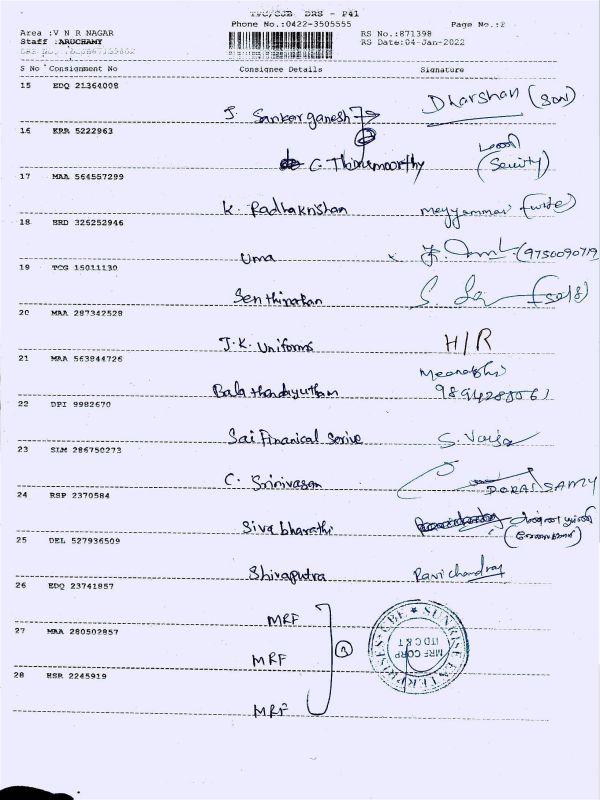 TVC/CJB DRS - P41
Phone No.:0422-3505555 Page No.:2
Area :V N R NAGAR RS No.:871398
Staff :ARUCHAMY RS Date:04-Jan-2022
S No Consignment No Consignee Details Signature
15 EDQ 21364008
J. Sankar ganesh Dharshan (Son)
16 KRR 5222963
C. Thirumoorthy
17 MAA 564557299
K. Radhakrishan Meyyammai (wife)
18 BRD 326252946
Uma (9750090719
19 TCG 15011130
Senthinathan (self)
20 MAA 287342528
J.K. Uniforms H/R
21 MAA 563844726
Meenakshi
Bala thandayutham
22 DPI 9982670
Sai Finanical Serive
23 SLM 286750273
C. Srinivasan DORAISAMY
24 RSP 2370584
Siva bharathi
25 DEL 527936509
Shivaputra Ravichandran
26 EDQ 23741857
MRF
27 MAA 280502857
MRF 3
28 HSR 2245919
MRF
SUNRISE ENTERPRISES CBE
MRF CORP